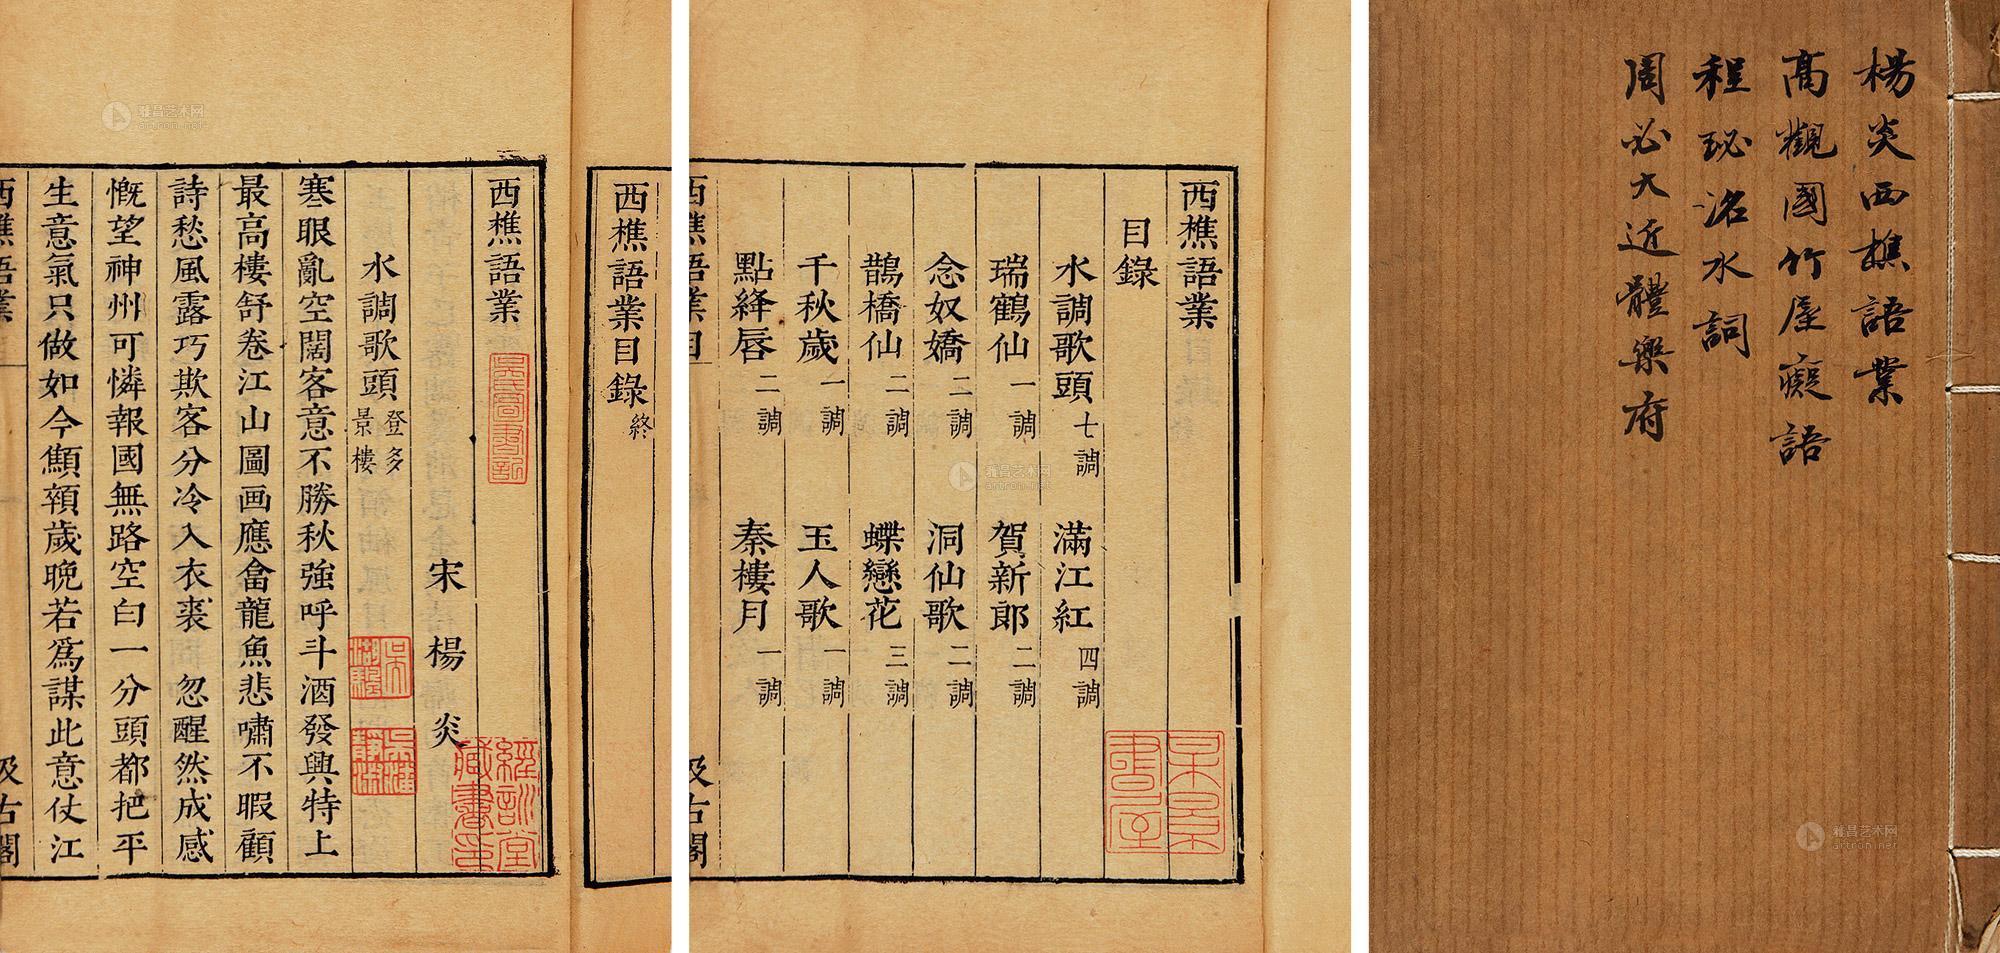 楊炎西樵語業
高觀國竹屋癡語
程珌洺水詞
周必大近體樂府
西樵語業
目錄
水調歌頭 七調 滿江紅 四調
瑞鶴仙 一調 賀新郎 二調
念奴嬌 二調 洞仙歌 二調
鵲橋仙 二調 蝶戀花 三調
千秋歲 一調 玉人歌 一調
點絳唇 二調 秦樓月 一調
西樵語業目
汲古閣
西樵語業目錄 終
西樵語業
宋 楊 炎
水調歌頭 登多景樓
寒眼亂空闊客意不勝秋強呼斗酒發興特上
最高樓舒卷江山圖画應畣龍魚悲嘯不暇顧
詩愁風露巧欺客分冷入衣裘 忽醒然成感
慨望神州可憐報國無路空白一分頭都把平
生意氣只做如今顦顇歲晚若爲謀此意仗江
西樵語業
汲古閣
經訓堂藏書印
雅昌艺术网
artron.net
雅昌艺术网
artron.net
雅昌艺术网
artron.net